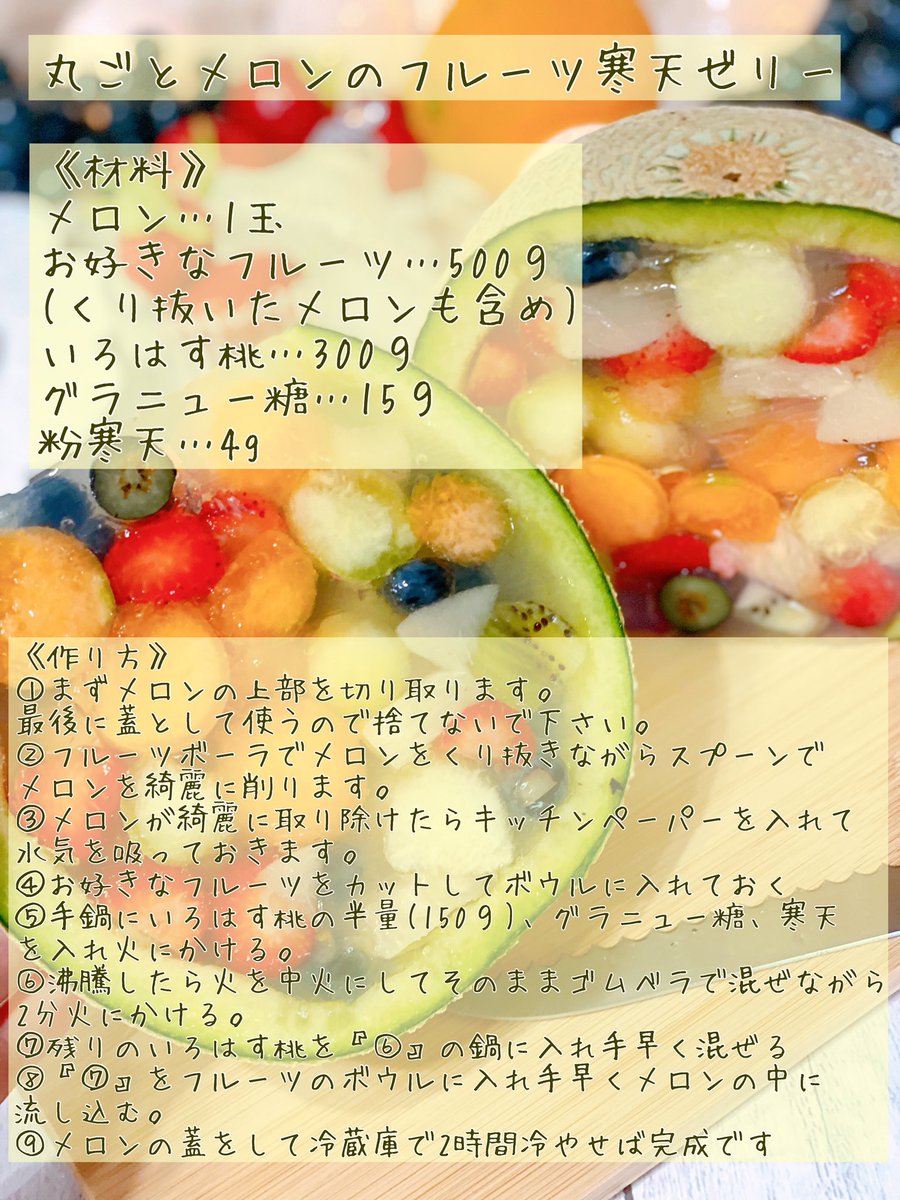 丸ごとメロンのフルーツ寒天ゼリー
《材料》
メロン…1玉
お好きなフルーツ…500g
(くり抜いたメロンも含め)
いろはす桃…300g
グラニュー糖…15g
粉寒天…4g
《作り方》
①まずメロンの上部を切り取ります。
最後に蓋として使うので捨てないで下さい。
②フルーツボーラでメロンをくり抜きながらスプーンで
メロンを綺麗に削ります。
③メロンが綺麗に取り除けたらキッチンペーパーを入れて
水気を吸っておきます。
④お好きなフルーツをカットしてボウルに入れておく
⑤手鍋にいろはす桃の半量(150g)、グラニュー糖、寒天
を入れ火にかける。
⑥沸騰したら火を中火にしてそのままゴムベラで混ぜながら
2分火にかける。
⑦残りのいろはす桃を『⑥』の鍋に入れ手早く混ぜる
⑧『⑦』をフルーツのボウルに入れ手早くメロンの中に
流し込む。
⑨メロンの蓋をして冷蔵庫で2時間冷やせば完成です